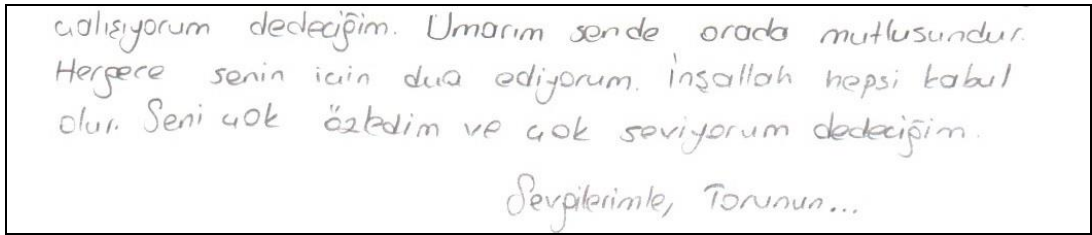 çalışıyorum dedeciğim. Umarım sende orada mutlusundur.
Hergece senin için dua ediyorum. İnşallah hepsi kabul
olur. Seni çok özledim ve çok seviyorum dedeciğim.
Sevgilerimle, Torunun...